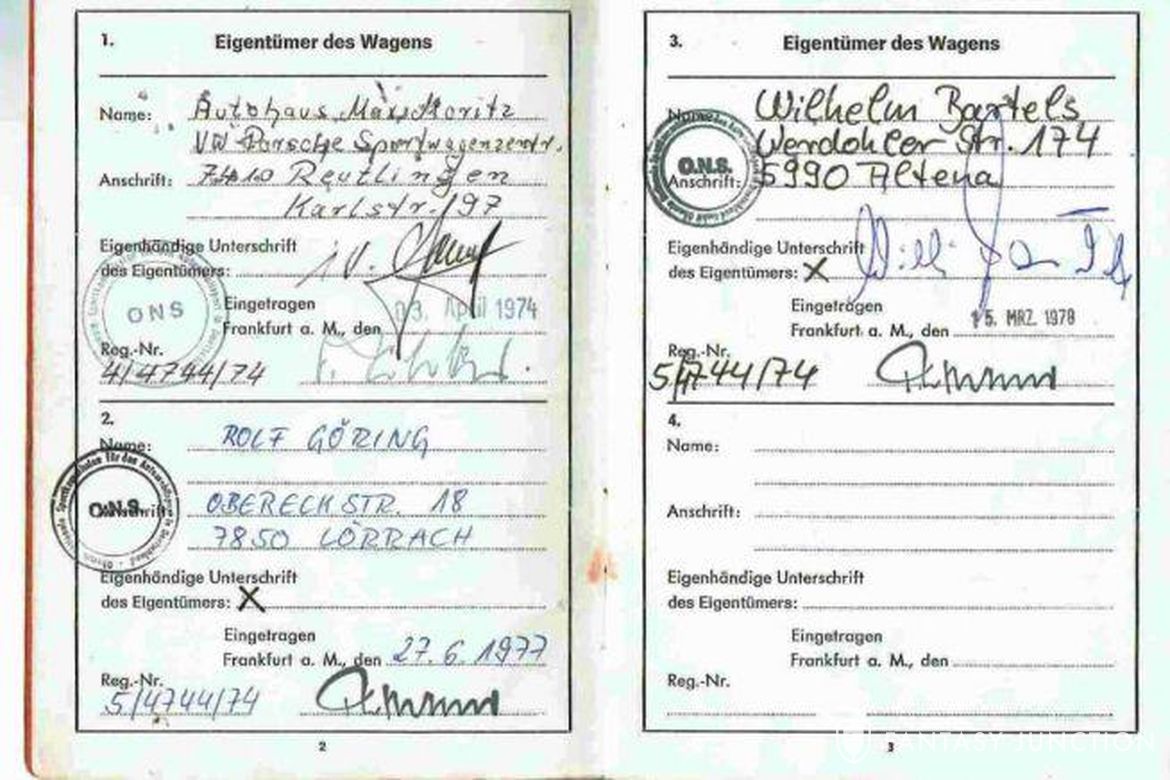 1. Eigentümer des Wagens
Name: Autohaus Max Moritz
VW Porsche Sportwagenzentr.
Anschrift: 7410 Reutlingen
Karlstr. 97
Eigenhändige Unterschrift
des Eigentümers: i.V.
ONS
Eingetragen
Frankfurt a. M., den 03. April 1974
Reg.-Nr.
4/4744/74
2.
Name: ROLF GÖRING
O.N.S.
Anschrift: OBERECKSTR. 18
7850 LÖRRACH
Eigenhändige Unterschrift
des Eigentümers: X
Eingetragen
Frankfurt a. M., den 27.6.1977
Reg.-Nr.
5/4744/74
2
3. Eigentümer des Wagens
Name: Wilhelm Bartels
Werdohler Str. 174
O.N.S.
Anschrift: 5990 Altena
Eigenhändige Unterschrift
des Eigentümers: X
Eingetragen
Frankfurt a. M., den 15. MRZ. 1978
Reg.-Nr.
5/4744/74
4.
Name:
Anschrift:
Eigenhändige Unterschrift
des Eigentümers:
Eingetragen
Frankfurt a. M., den
Reg.-Nr.
3
FANTASY JUNCTION